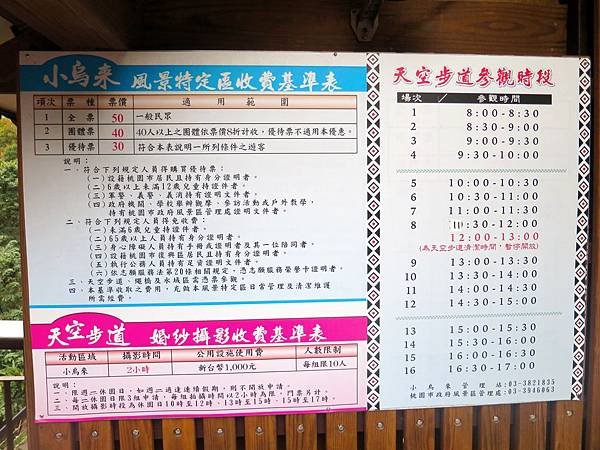 小烏來 風景特定區收費基準表
項次 票種 票價 適用範圍
1 全票 50 一般民眾
2 團體票 40 40人以上之團體依票價8折計收，優待票不適用本優惠。
3 優待票 30 符合本表說明一所列條件之遊客
說明：
一、符合下列規定人員得購買優待票：
(一)設籍桃園市居民且持有身分證明者。
(二)6歲以上未滿12歲兒童持證件者。
(三)軍警、義警、義消持有證明文件者。
(四)政府機關、學校舉辦觀摩、參訪活動或戶外教學，
持有桃園市政府風景區管理處證明文件者。
二、符合下列規定人員得免收費：
(一)未滿6歲兒童持證件者。
(二)65歲以上人員持有身分證明者。
(三)身心障礙人員持有手冊或證明者及其一位陪同者。
(四)設籍桃園市復興區居民且持有身分證明者。
(五)執行公務人員持有足資證明文件者。
(六)依志願服務法第20條相關規定，憑志願服務榮譽卡證明者。
三、天空步道、繩橋及水域區需憑票參觀。
四、本基準收取之費用，充做本風景特定區日常管理及清潔維護
所需經費。
天空步道 婚紗攝影收費基準表
活動區域 攝影時間 公用設施使用費 人數限制
小烏來 2小時 新台幣1,000元 每組限10人
說明：
一、限週二休園日，如週二適逢連續假期，則不開放申請。
二、每二休園日限3組申請，每組拍攝時間以2小時為限，門票另計。
三、開放攝影時段為休園日10時至12時、13時至15時、15時至17時。
天空步道參觀時段
場次 / 參觀時間
1 8:00-8:30
2 8:30-9:00
3 9:00-9:30
4 9:30-10:00
5 10:00-10:30
6 10:30-11:00
7 11:00-11:30
8 11:30-12:00
12:00-13:00
(為天空步道清潔時間，暫停開放)
9 13:00-13:30
10 13:30-14:00
11 14:00-14:30
12 14:30-15:00
13 15:00-15:30
14 15:30-16:00
15 16:00-16:30
16 16:30-17:00
小烏來管理站：03-3821835
桃園市政府風景區管理處：03-3946063